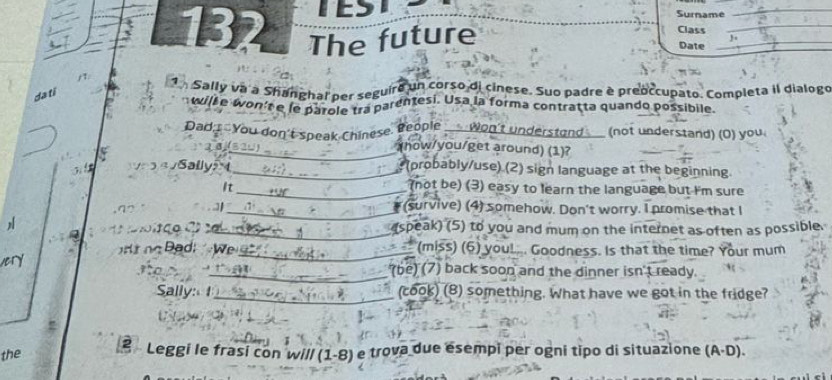 TEST
132 The future
Surname
Class
Date
1 Sally va a Shanghai per seguire un corso di cinese. Suo padre è preoccupato. Completa il dialogo
will e won't e le parole tra parentesi. Usa la forma contratta quando possibile.
Dad: You don't speak Chinese. People won't understand (not understand) (0) you.
(how/you/get around) (1)?
Sally: I (probably/use) (2) sign language at the beginning.
It (not be) (3) easy to learn the language but I'm sure
I (survive) (4) somehow. Don't worry. I promise that I
(speak) (5) to you and mum on the internet as often as possible.
Dad: We (miss) (6) you! Goodness. Is that the time? Your mum
(be) (7) back soon and the dinner isn't ready.
Sally: I (cook) (8) something. What have we got in the fridge?
2 Leggi le frasi con will (1-8) e trova due esempi per ogni tipo di situazione (A-D).
dati
very
the